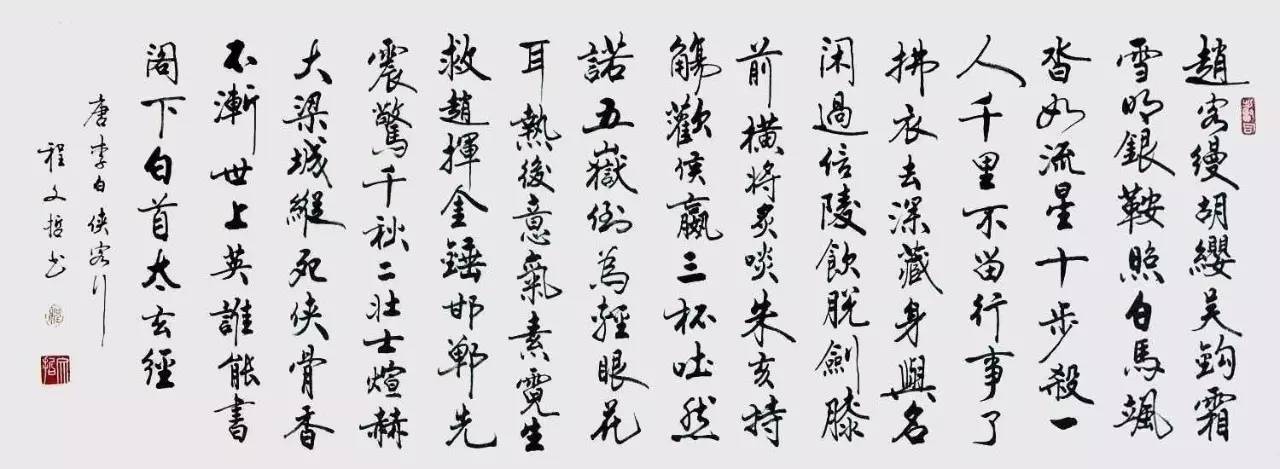 趙客縵胡纓吳鈎霜
雪明銀鞍照白馬颯
沓如流星十步殺一
人千里不留行事了
拂衣去深藏身與名
閑過信陵飲脫劍膝
前橫將炙啖朱亥持
觴歡侯嬴三杯吐然
諾五嶽倒為輕眼花
耳熱後意氣素霓生
救趙揮金錘邯鄲先
震驚千秋二壯士煊赫
大梁城縱死俠骨香
不漸世上英誰能書
閣下白首太玄經
唐李白俠客行
程文哲书